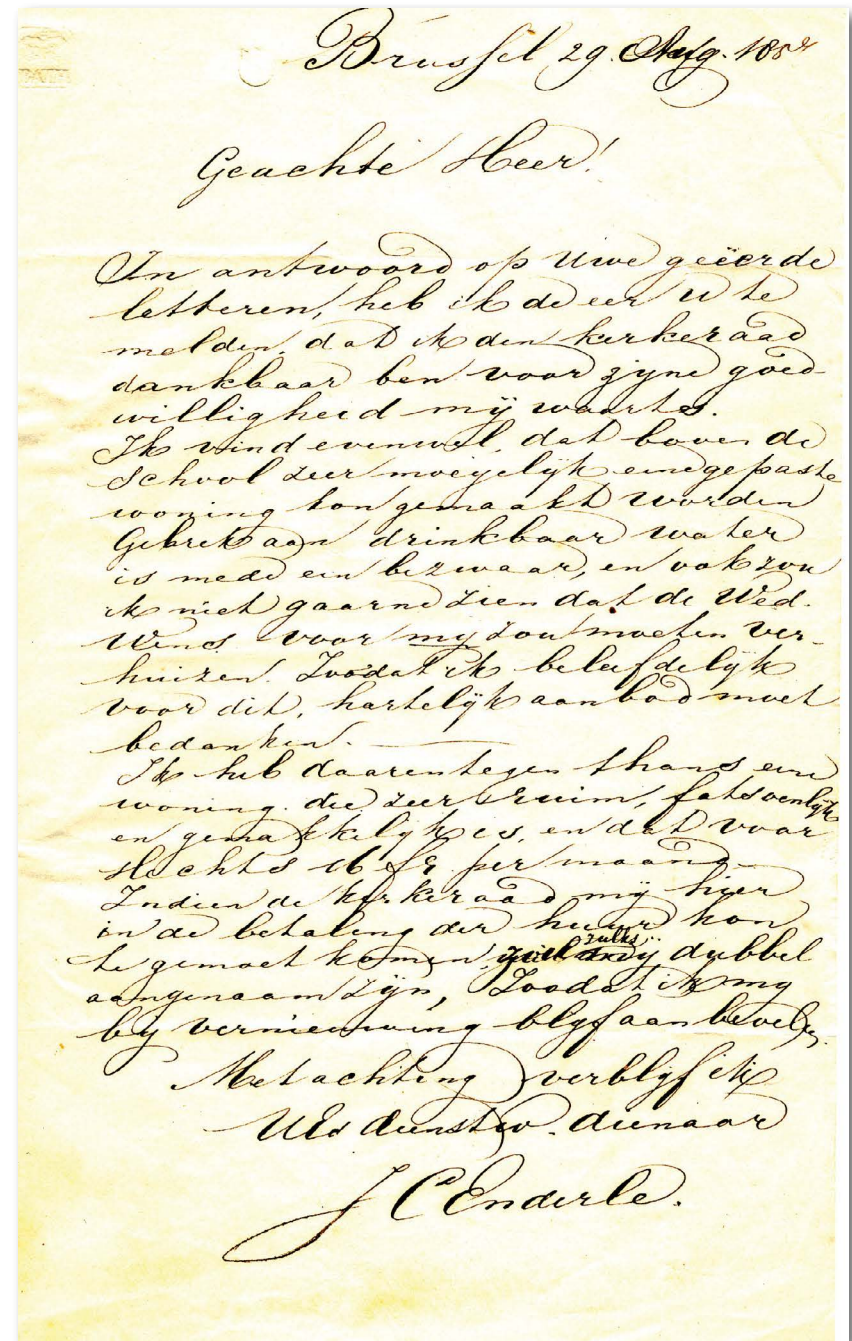 Brussel 29. Aug. 185
Geachte Heer!
In antwoord op Uwe geëerde
letteren, heb ik de eer U te
melden, dat ik den kerkeraad
dankbaar ben voor zyne goed-
willigheid mÿ waarts.
Ik vind evenwel, dat boven de
School zeer moeyelÿk eene gepaste
woning kon gemaakt worden
Gebrek aan drinkbaar water
is mede een bezwaar, en ook zou
ik niet gaarne zien dat de Wed.
voor my zou moeten ver-
huizen. Zoodat ik beleefdelÿk
voor dit, hartelÿk aanbod moet
bedanken. —
Ik heb daarentegen thans eene
woning. die zeer ruim, fatsoenlÿk
en gemakkelÿk is, en dat voor
slechts 16 fr per maand
Indien de kerkeraad mÿ hier
in de betaling der huur kon
te gemoet komen, zulks dubbel
aangenaam zÿn, Zoodat ik my
by vernieuwing blyf aanbevelen.
Met achting verblyf ik
UEd dienstw. dienaar
J C Enderle.